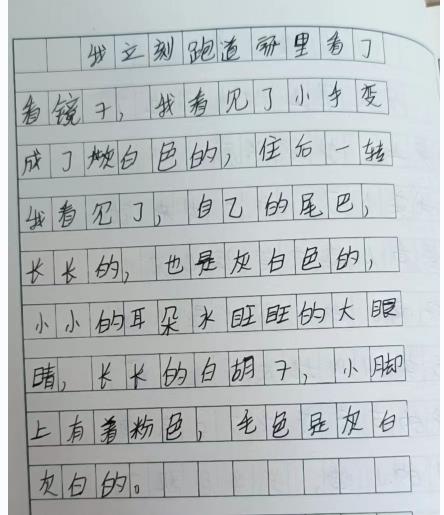 我立刻跑道哥里看了
看镜子，我看见了小手变
成了灰白色的，住后一转
我看见了，自己的尾巴，
长长的，也是灰白色的，
小小的耳朵水旺旺的大眼
睛，长长的白胡子，小脚
上有着粉色，毛色是灰白
灰白的。